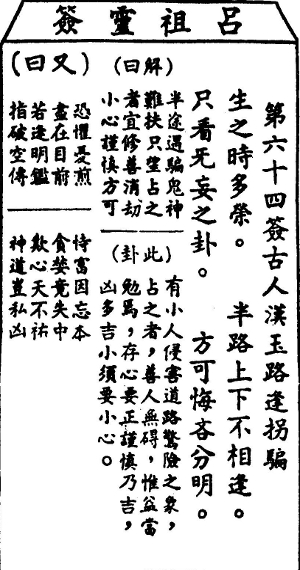 呂祖靈簽
第六十四簽古人漢玉路逢拐騙
生之時多榮。 半路上下不相逢。
只看无妄之卦。 方可悔吝分明。
(解曰)
半途遇騙鬼神
難扶只望占之
者宜修善消劫
小心謹慎方可
(此卦)
有小人侵害道路驚險之象，
占之者，善人無碍，惟益當
勉焉，存心要正謹慎乃吉，
凶多吉小須要小心。
(又曰)
恐懼憂煎
盡在目前
若逢明鑑
指破空傳
恃富因忘本
貪婪竟失中
欺心天不祐
神道豈私凶